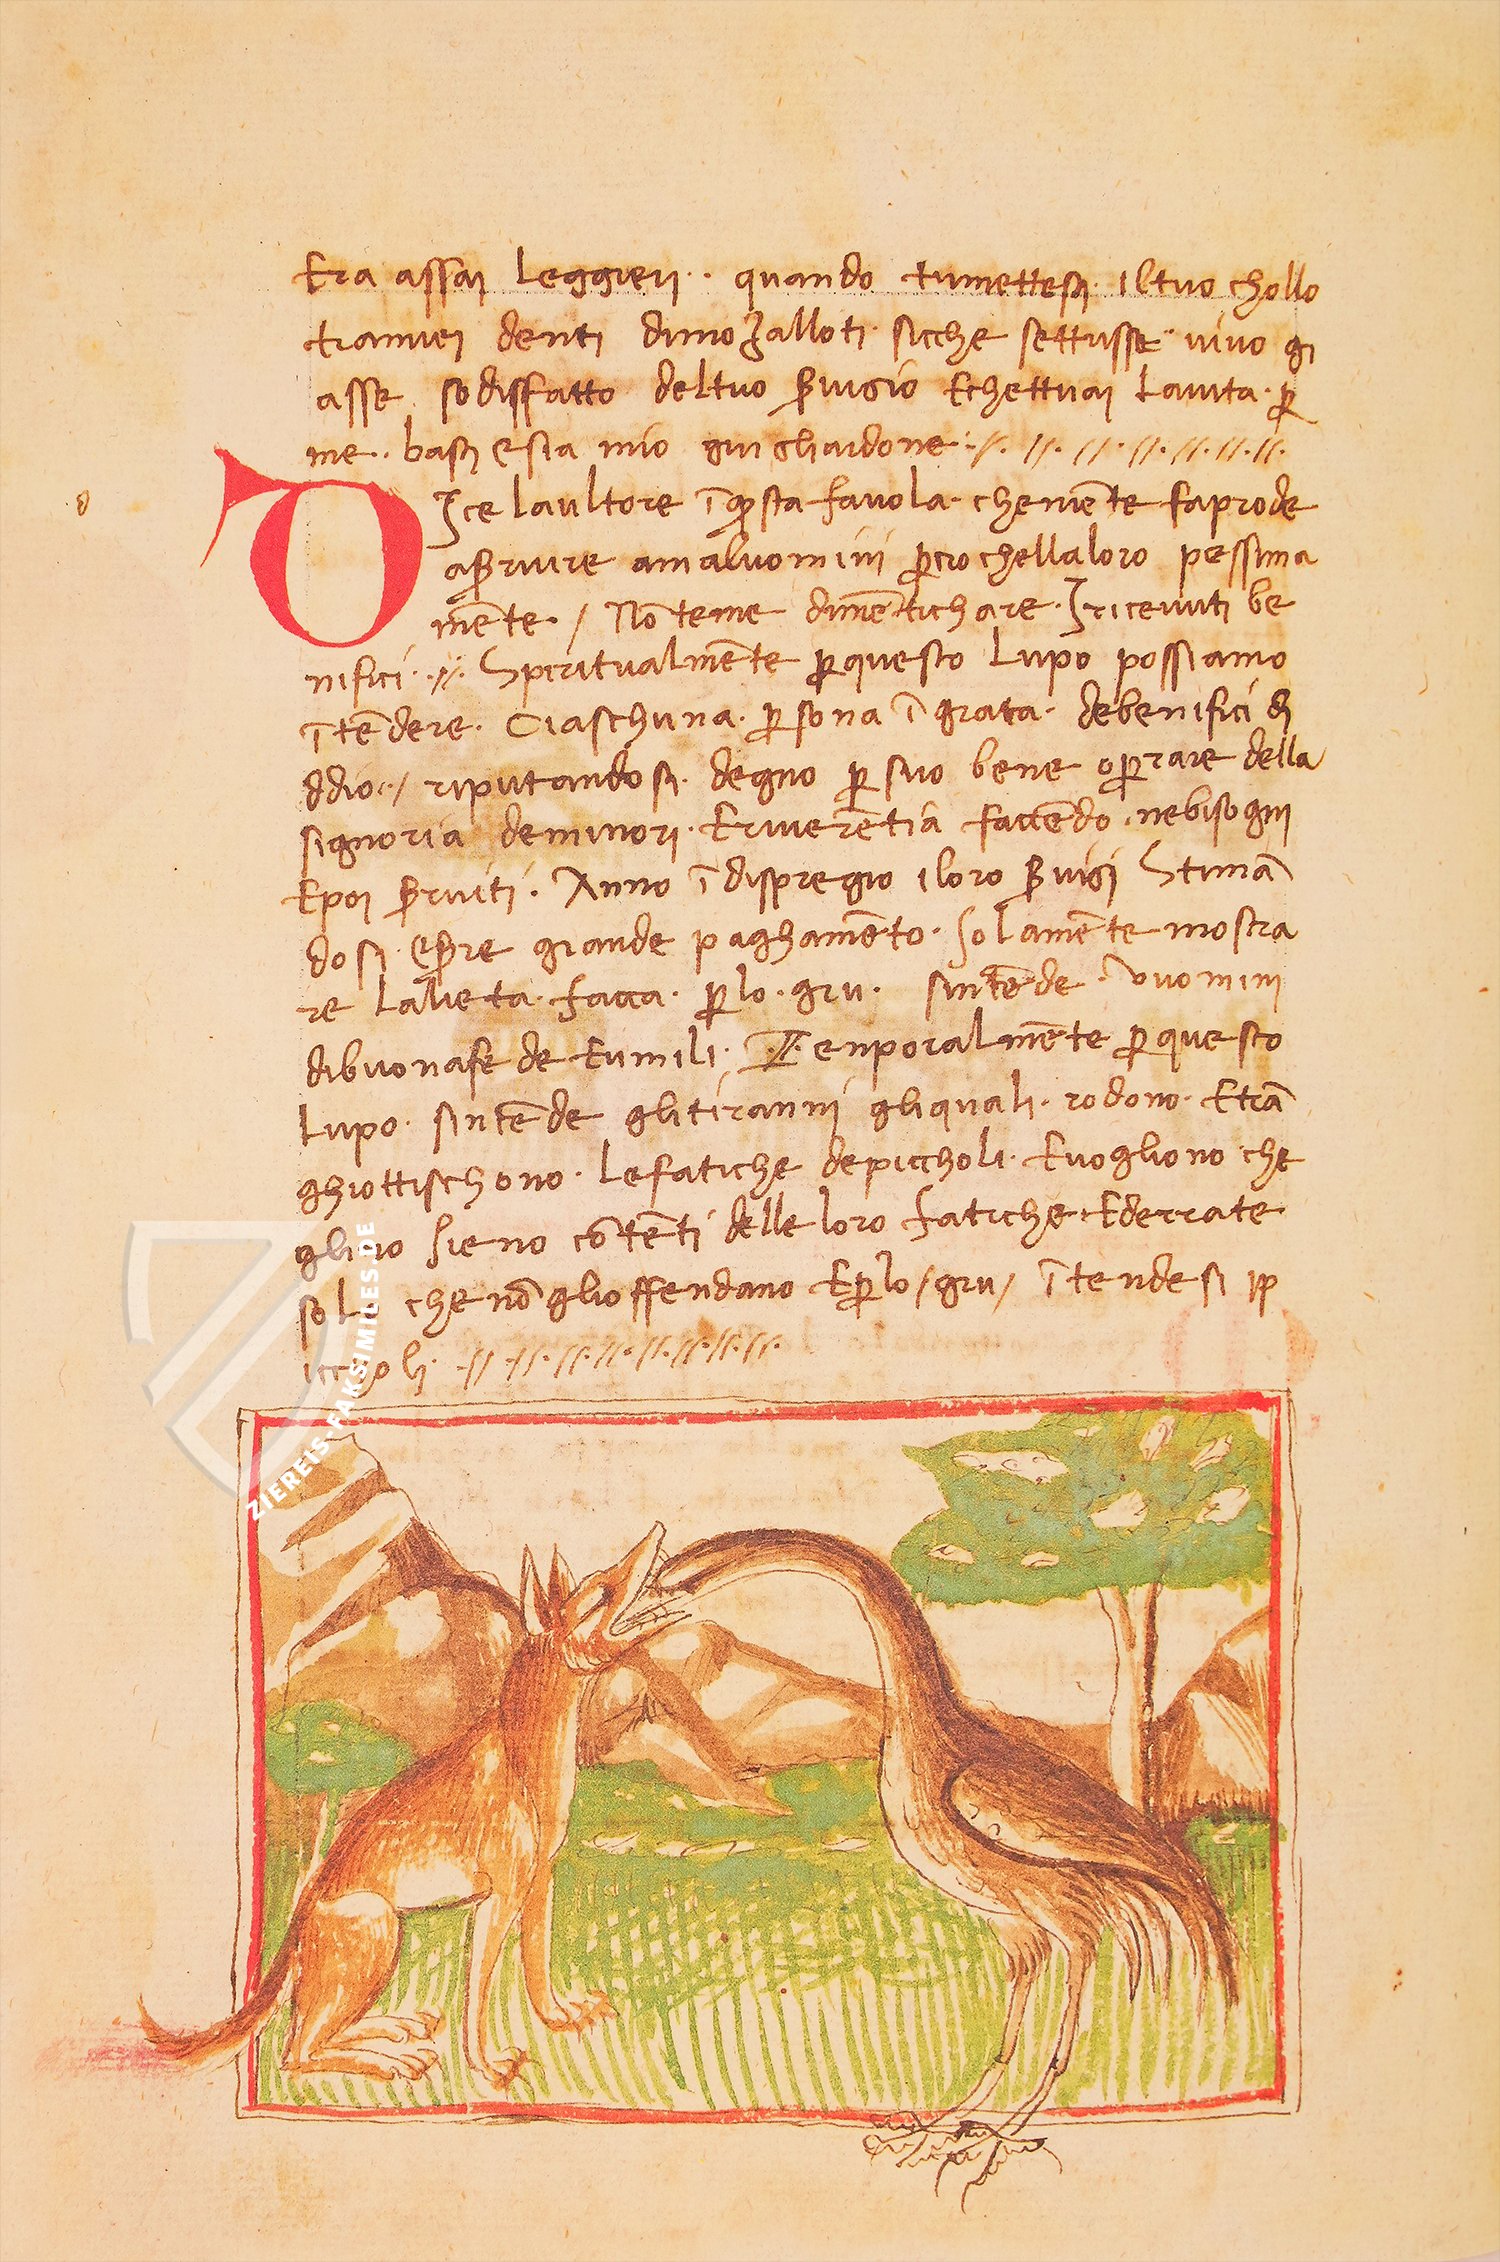 Era assai leggieri·· quando tumettesti· iltuo chollo
tramiei denti dimozalloti· sicche settusse vivo gi
asse sodisfatto deltuo s̄vigio Echettuai lavita· p̄
me·· basti esia mio guighardone
DIce laultore ī q̄sta favola· cheniēte faprode
as̄rvire amaluomini p̄cio chellaloro pessima
mēte· / Nō teme dimēntichare· Iricevuti be
nifici· Spiritualmēte p̄ questo Lupo possiamo
ītēdere· Ciaschuna· p̄sona īgrata· debenifici di
ddio·/ riputandosi· degno p̄ suo bene op̄rare della
signoria deminori· Eriverētia faccēdo· nebisogni
Epoi s̄rviti· Anno ī dispregio iloro s̄vigi Stimā
dosi es̄re grande paghamēto· solamēte mostra
re Lalieta· faccia· p̄lo· gru· sintēde· vuomini
dibuonafe de Eumili· Tenporalmēte p̄ questo
Lupo· sintēde glitiranni gliquali· rodono· Etrā
ghiottischono· Lefatiche depiccholi· Evogliono che
glino sieno cōtēti delle loro fatiche· Ederrate
solo che nō glioffendano Ep̄lo/gru/ ītendesi ip
iccholi·
ZIEREIS-FAKSIMILES.DE